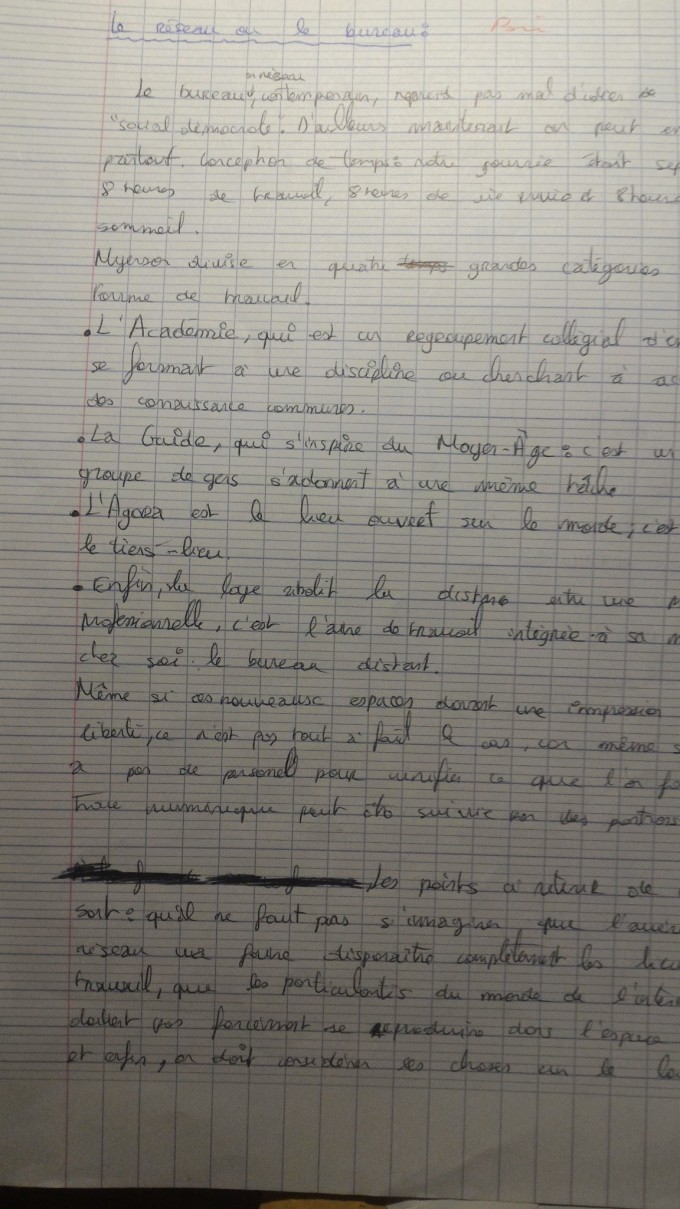 Le réseau ou le bureau:
en réseau
Le bureau contemporain, pas mal d'idées de
"social démocrate". D'ailleurs maintenant on peut
partout. Conception de temps: notre journée étant
8 heures de travail, 8 heures de vie privée 8 heures
sommeil.
Myerson divise en quatre grandes catégories
forme de travail.
• L'Académie, qui est un regroupement collégial
se formant à une discipline ou cherchant à
des connaissance communes.
• La Guilde, qui s'inspire du Moyen-Âge: c'est un
groupe de gens s'adonnant à une même tâche
• L'Agora est le lieu ouvert sur le monde; c'est
le tiers-lieu.
• Enfin, la loge abolit la distance entre une
professionnelle, c'est l'aire de travail intégrée à sa
chez soi. le bureau distant.
Même si ces nouveaux espaces donnent une impression
liberté, ce n'est pas tout à fait le cas, car même
a pas de personnel pour vérifier ce que l'on
trace numérique peut être suivie par des
Les points à retenir de
sont: qu'il ne faut pas s'imaginer que
réseau va faire disparaître complètement les
travail, que les particularités du monde de
doivent pas forcément se reproduire dans l'espace
et enfin, on doit considérer ses choses sur le